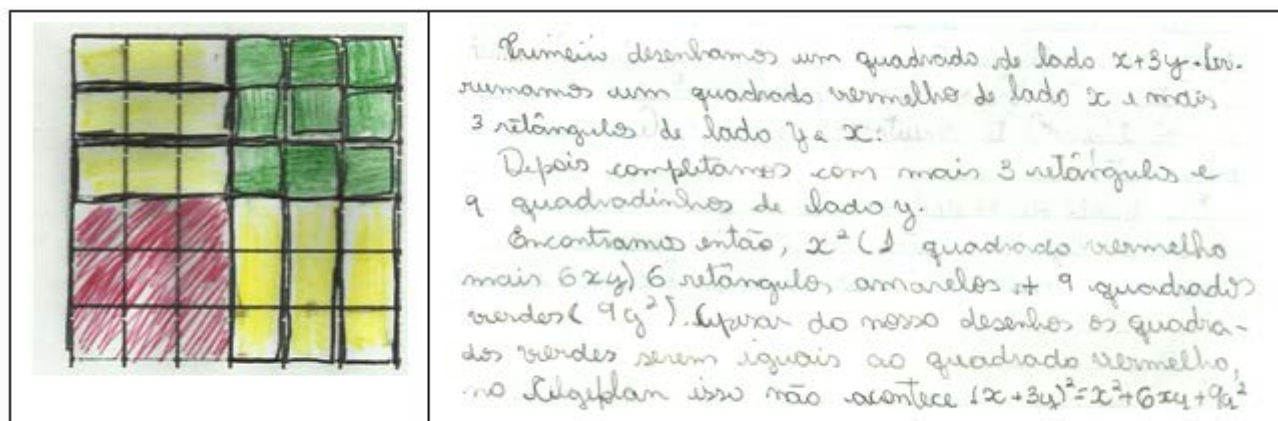 Primeiro desenhamos um quadrado de lado x+3y. Arru-
rumamos um quadrado vermelho de lado x e mais
3 retângulos de lado y e x.
Depois completamos com mais 3 retângulos e
9 quadradinhos de lado y.
Encontramos então, x² (1 quadrado vermelho
mais 6xy) 6 retângulos amarelos + 9 quadrados
verdes (9y²). Apesar do nosso desenhos os quadra-
dos verdes serem iguais ao quadrado vermelho,
no Algeplan isso não acontece (x+3y)²=x²+6xy+9y²